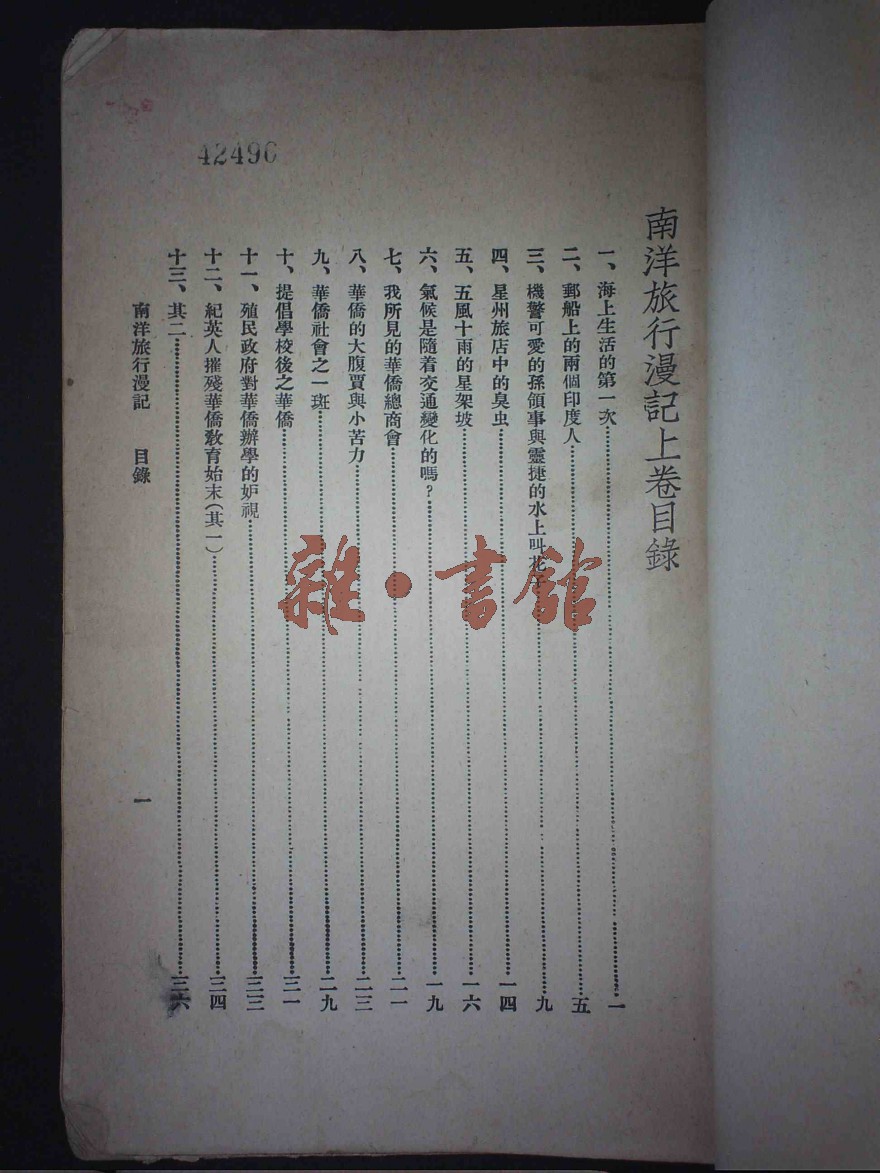 南洋旅行漫記上卷目錄
一、海上生活的第一次……一
二、郵船上的兩個印度人……五
三、機警可愛的孫領事與靈捷的水上叫花子……九
四、星州旅店中的臭虫……一四
五、五風十雨的星架坡……一六
六、氣候是隨着交通變化的嗎？……一九
七、我所見的華僑總商會……二一
八、華僑的大腹賈與小苦力……二三
九、華僑社會之一斑……二九
十、提倡學校後之華僑……三一
十一、殖民政府對華僑辦學的妒視……三三
十二、紀英人摧殘華僑敎育始末（其一）……三四
十三、其二……三六
南洋旅行漫記 目錄 一
42496
雜·書館